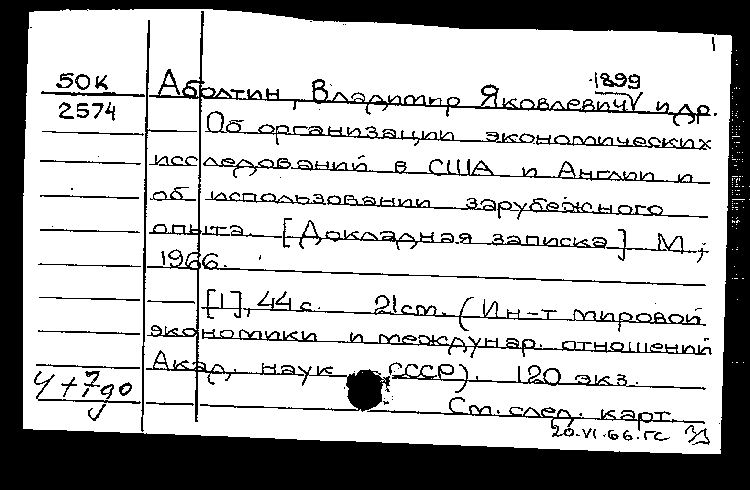 1
1899
50К Аболтин, Владимир Яковлевич и др.
2574 Об организации экономических
исследований в США и Англии и
об использовании зарубежного
опыта. [Докладная записка] М.,
1966.
[1], 44 с. 21 см. (Ин-т мировой
экономики и междунар. отношений
Акад. наук СССР). 120 экз.
См. след. карт.
20.VI.66.ГС